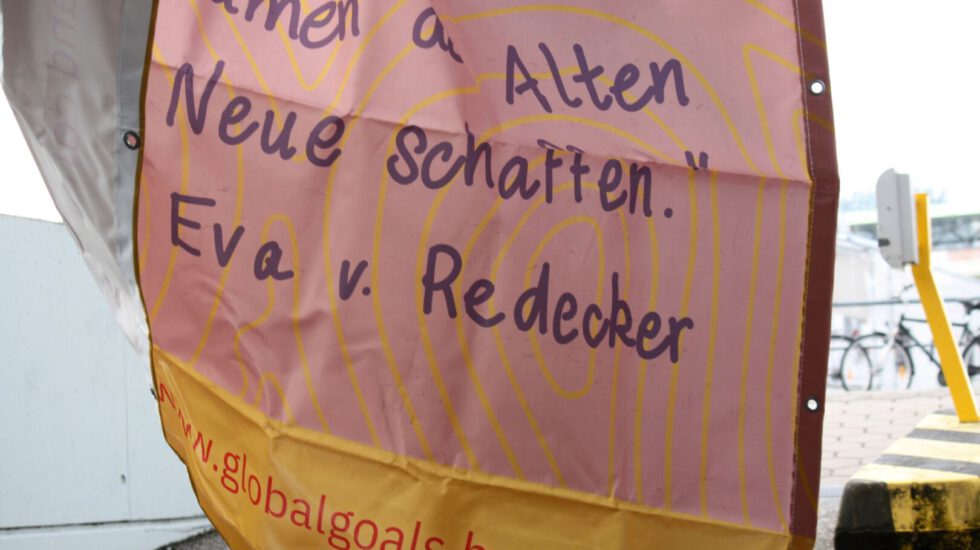 Alten
Neue schaffen."
Eva v. Redecker
www.globalgoals.